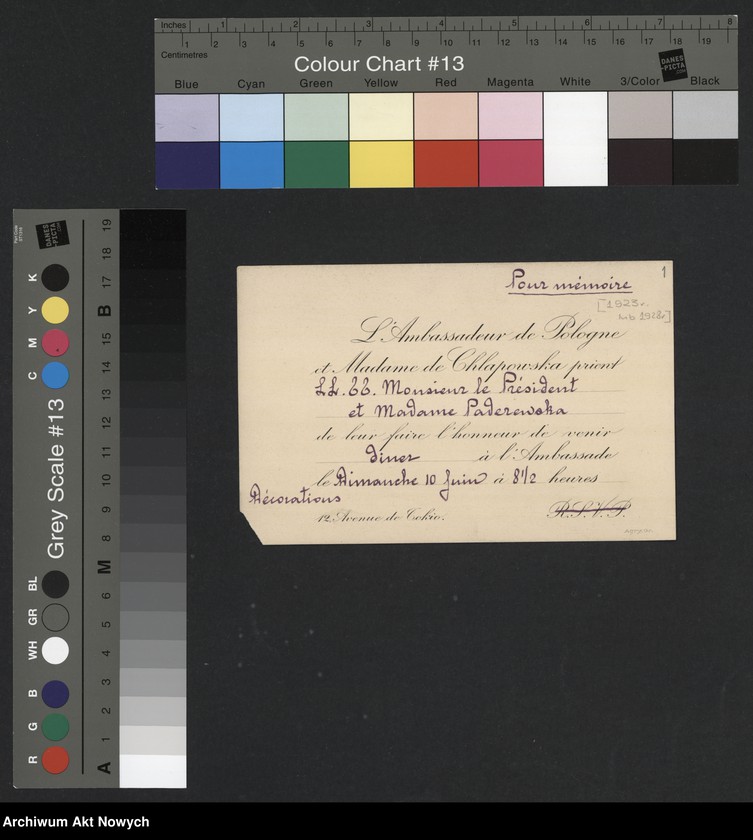 Inches 1 2 3 4 5 6 7 8
Centimetres 1 2 3 4 5 6 7 8 9 10 11 12 13 14 15 16 17 18 19
Colour Chart #13
DANES-PICTA.COM
Blue Cyan Green Yellow Red Magenta White 3/Color Black
Grey Scale #13
DANES-PICTA.COM
K Y M C
BL GR WH B G R
19 18 17 B 15 14 13 12 11 10 9 8 M 6 5 4 3 2 1 A
1
Pour mémoire
[1923 r.
lub 1928r]
L'Ambassadeur de Pologne
et Madame de Chłapowska prient
LL. EE. Monsieur le Président
et Madame Paderewska
de leur faire l'honneur de venir
diner à l'Ambassade
le Dimanche 10 Juin à 8 1/2 heures
Décorations
12, Avenue de Tokio.
R.S.V.P.
Archiwum Akt Nowych